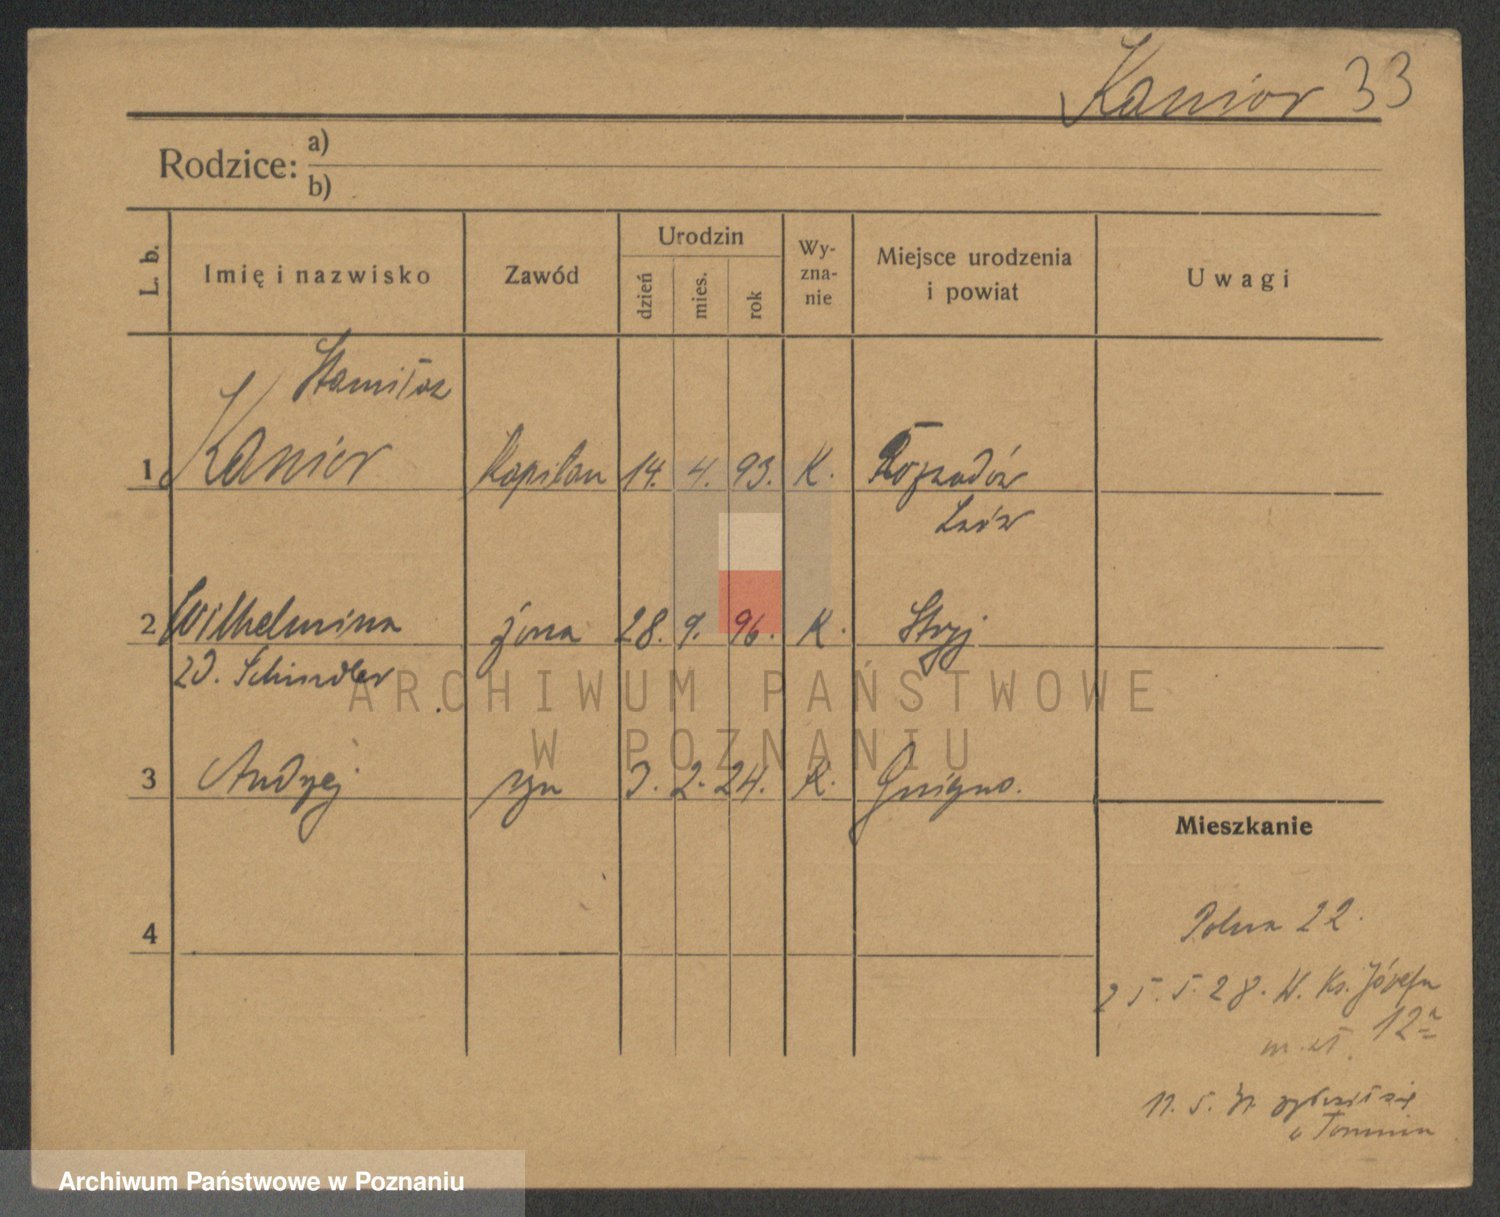 Kanior 33
Rodzice: a)
b)
L. b.
Imię i nazwisko
Zawód
Urodzin
dzień
mies.
rok
Wy-
zna-
nie
Miejsce urodzenia
i powiat
Uwagi
Stanisław
1 Kanior Kapitan 14. 4. 93. K.
Lwów
2 Wilhelmina żona 28. 9. 96. K. Stryj
zd. Schindler
ARCHIWUM PAŃSTWOWE
W POZNANIU
3 Andrzej syn 3. 2. 24. K.
Mieszkanie
4
Polna 22.
25.5.28. Ks. Józefa
12a
11. 5.
Archiwum Państwowe w Poznaniu